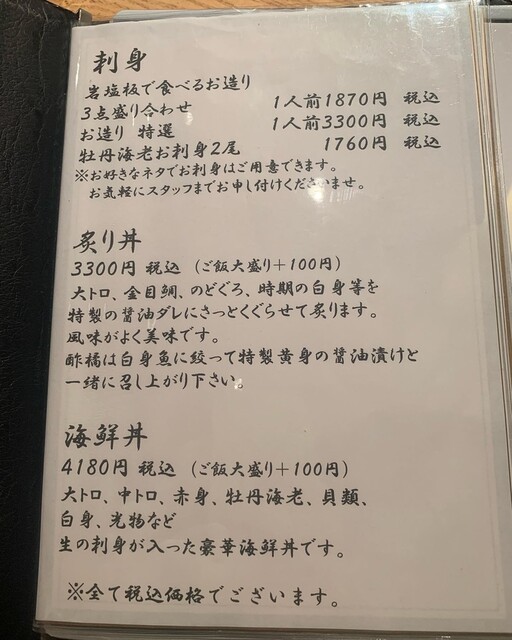 刺身
岩塩板で食べるお造り
3点盛り合わせ 1人前1870円 税込
お造り 特選 1人前3300円 税込
牡丹海老お刺身2尾 1760円 税込
※お好きなネタでお刺身はご用意できます。
お気軽にスタッフまでお申し付けくださいませ。
炙り丼
3300円 税込 (ご飯大盛り+100円)
大トロ、金目鯛、のどぐろ、時期の白身等を
特製の醤油ダレにさっとくぐらせて炙ります。
風味がよく美味です。
酢橘は白身魚に絞って特製黄身の醤油漬けと
一緒に召し上がり下さい。
海鮮丼
4180円 税込 (ご飯大盛り+100円)
大トロ、中トロ、赤身、牡丹海老、貝類、
白身、光物など
生の刺身が入った豪華海鮮丼です。
※全て税込価格でございます。